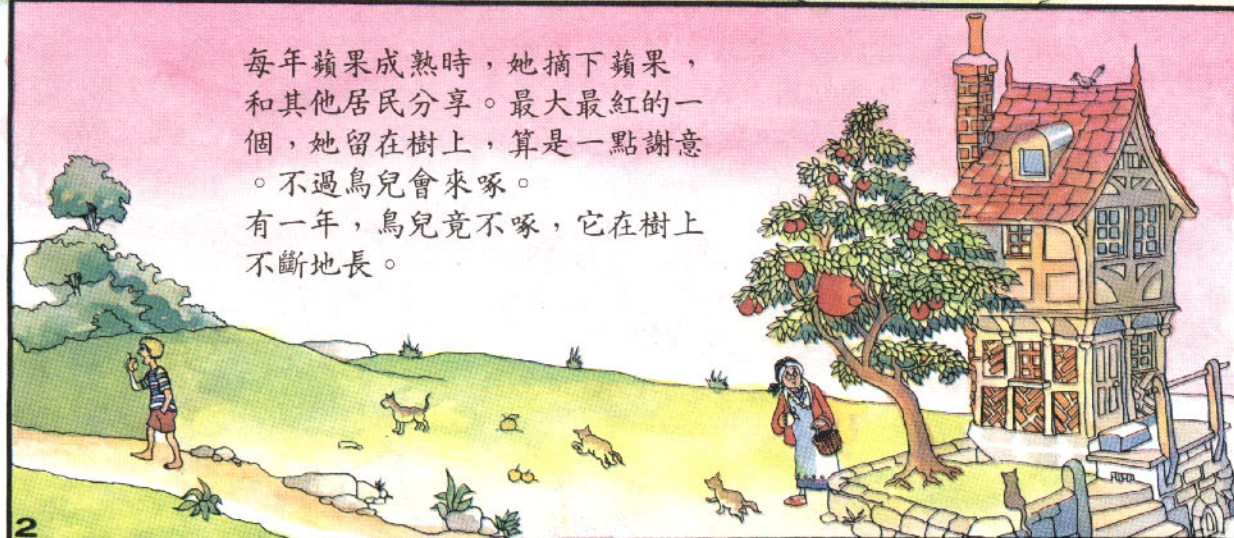 每年蘋果成熟時，她摘下蘋果，
和其他居民分享。最大最紅的一
個，她留在樹上，算是一點謝意
。不過鳥兒會來啄。
有一年，鳥兒竟不啄，它在樹上
不斷地長。
2